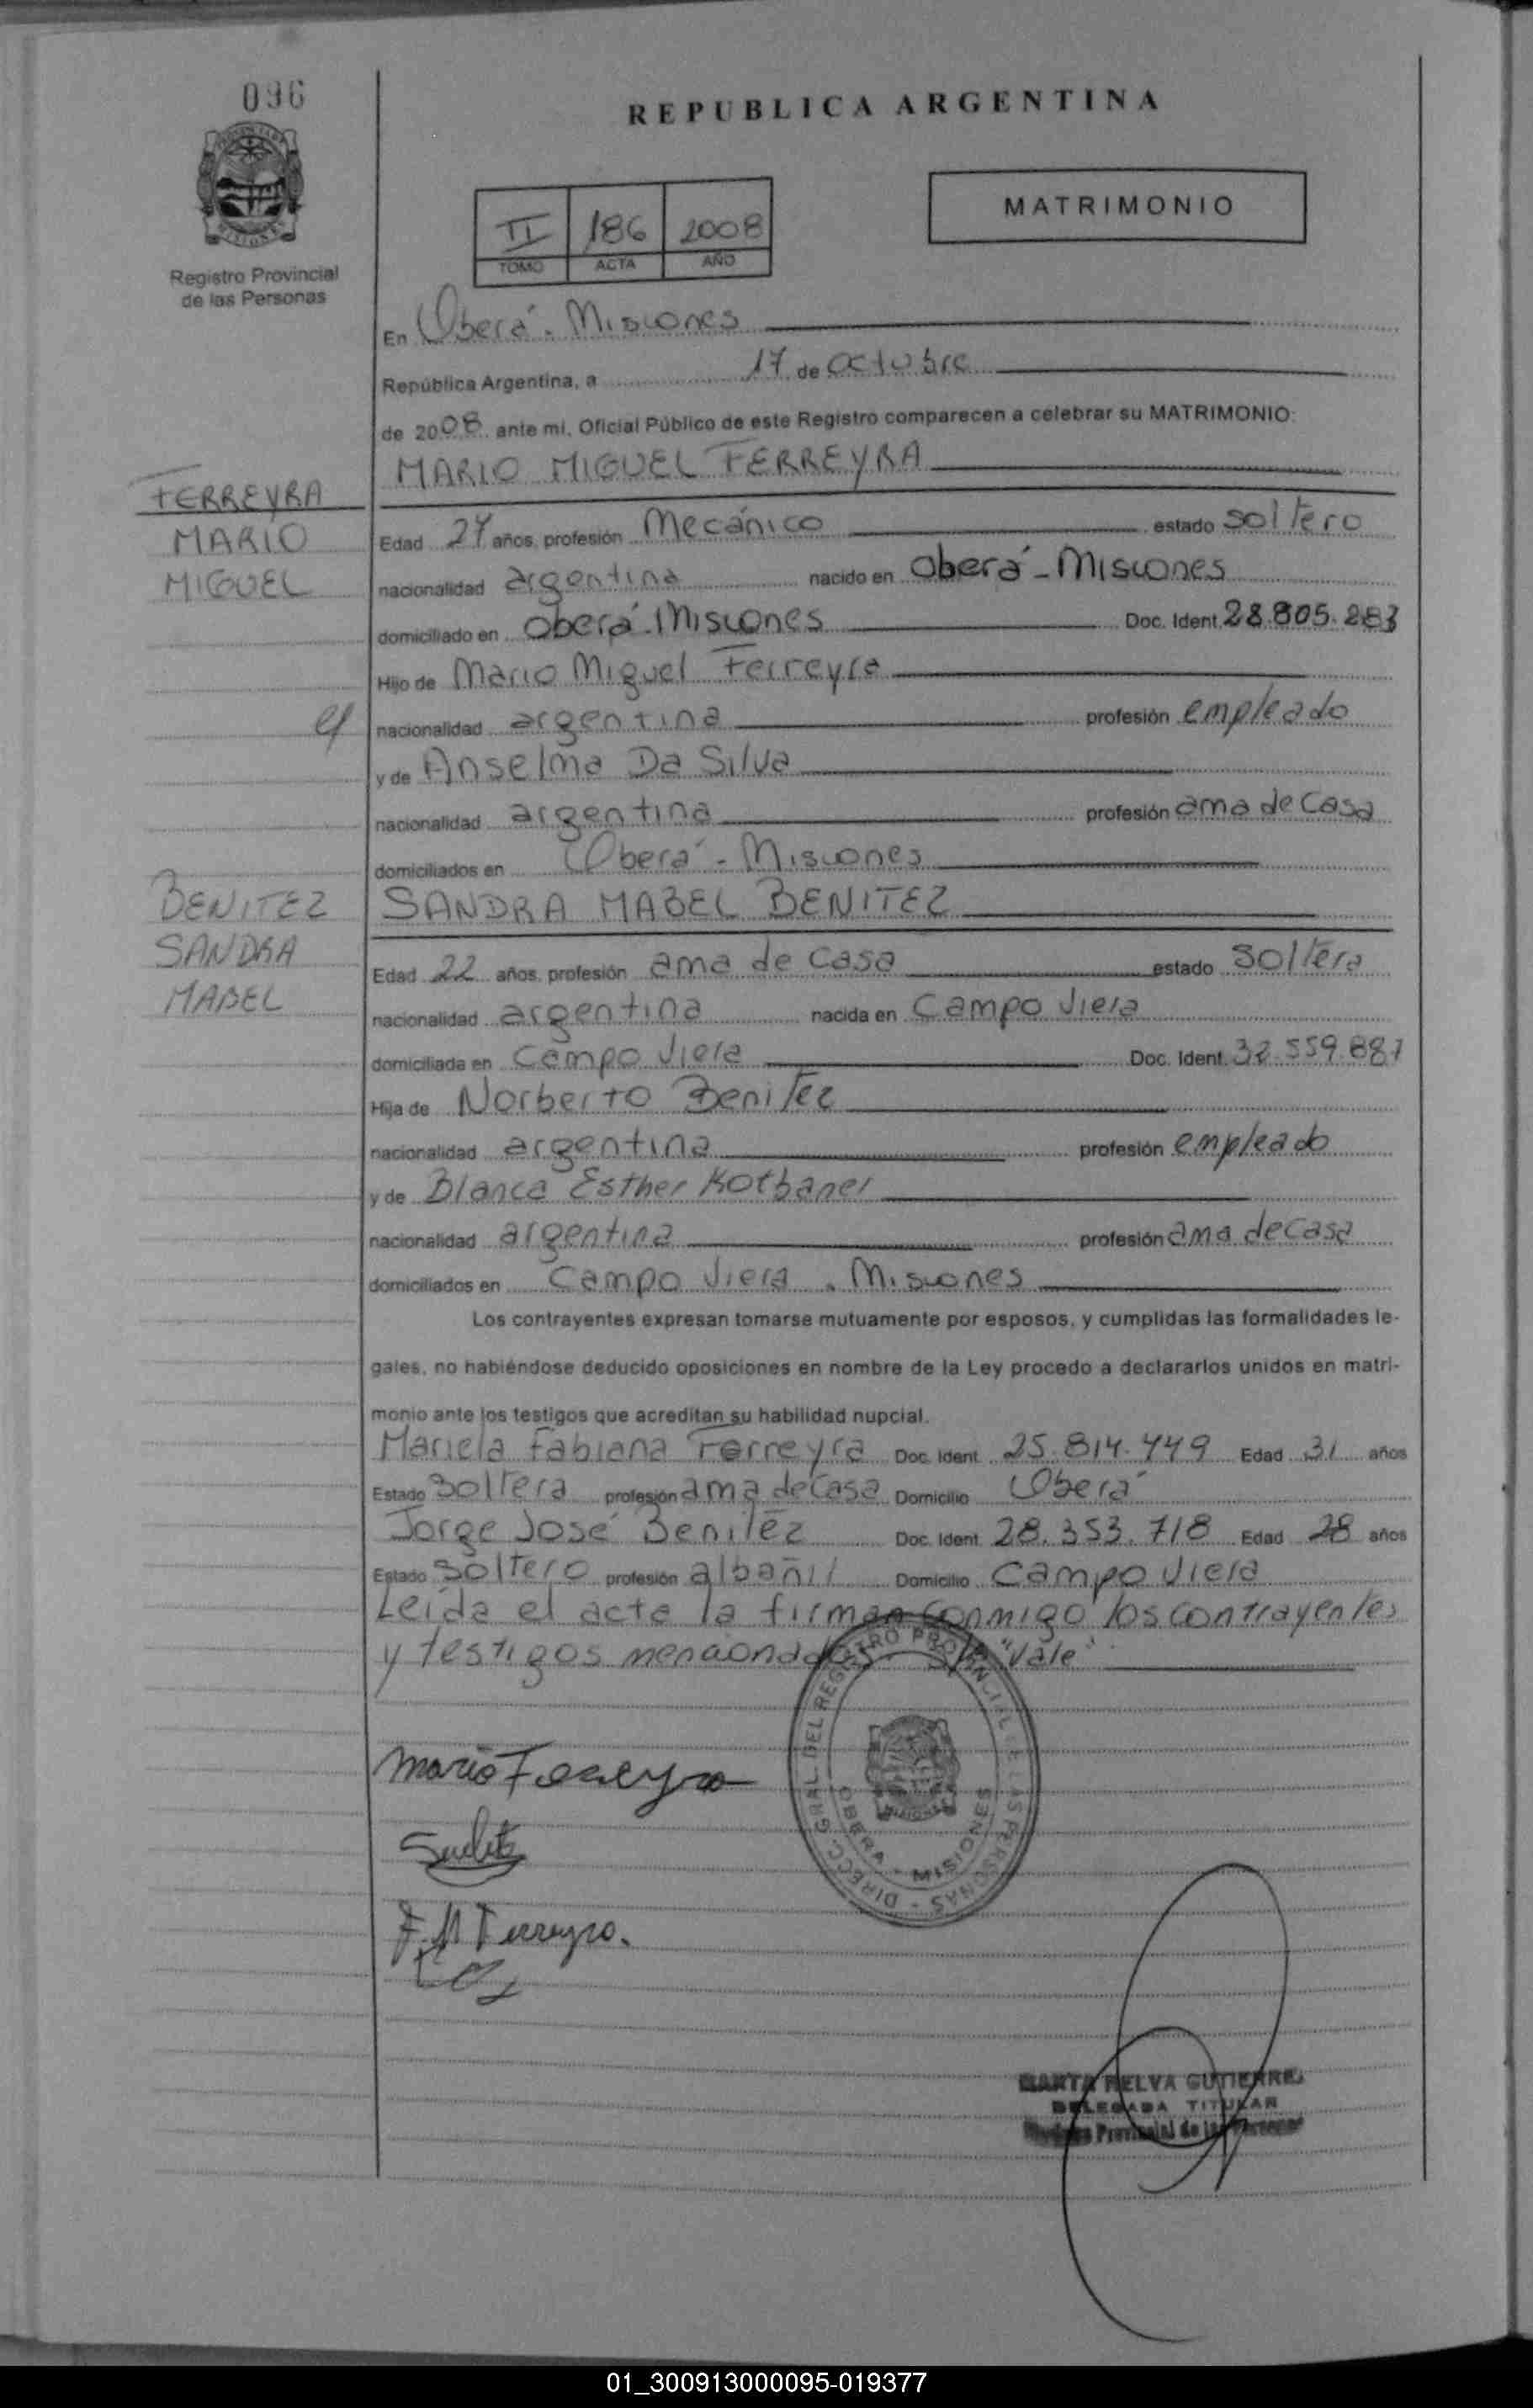 096
REPUBLICA ARGENTINA
MATRIMONIO
II 186 2008
TOMO ACTA AÑO
Registro Provincial
de las Personas
En Oberá - Misiones
República Argentina, a 17 de octubre
de 2008 ante mi, Oficial Público de este Registro comparecen a celebrar su MATRIMONIO:
MARIO MIGUEL FERREYRA
FERREYRA
MARIO
MIGUEL
Edad 27 años, profesión Mecánico estado soltero
nacionalidad argentina nacido en Oberá - Misiones
domiciliado en Oberá - Misiones Doc. Ident. 28.805.283
Hijo de Mario Miguel Ferreyra
nacionalidad argentina profesión empleado
y de Anselma Da Silva
nacionalidad argentina profesión ama de casa
domiciliados en Oberá - Misiones
BENITEZ
SANDRA
MABEL
SANDRA MABEL BENITEZ
Edad 22 años, profesión ama de casa estado soltera
nacionalidad argentina nacida en Campo Viera
domiciliada en Campo Viera Doc. Ident. 32.559.887
Hija de Norberto Benitez
nacionalidad argentina profesión empleado
y de Blanca Esther
nacionalidad argentina profesión ama de casa
domiciliados en Campo Viera - Misiones
Los contrayentes expresan tomarse mutuamente por esposos, y cumplidas las formalidades le-
gales, no habiéndose deducido oposiciones en nombre de la Ley procedo a declararlos unidos en matri-
monio ante los testigos que acreditan su habilidad nupcial.
Mariela Fabiana Ferreyra Doc. Ident. 25.814.449 Edad 31 años
Estado soltera profesión ama de casa Domicilio Oberá
Jorge José Benitez Doc. Ident. 28.353.718 Edad 28 años
Estado soltero profesión albañil Domicilio Campo Viera
Leída el acta la firman conmigo los contrayentes
y testigos mencionados. "Vale"
DIRECC. GRAL. DEL REGISTRO PROVINCIAL DE LAS PERSONAS
OBERA - MISIONES
Mario Ferreyra
F. M Ferreyra.
MARTA NELVA GUTIERREZ
DELEGADA TITULAR
Registro Provincial de las Personas
01_300913000095-019377